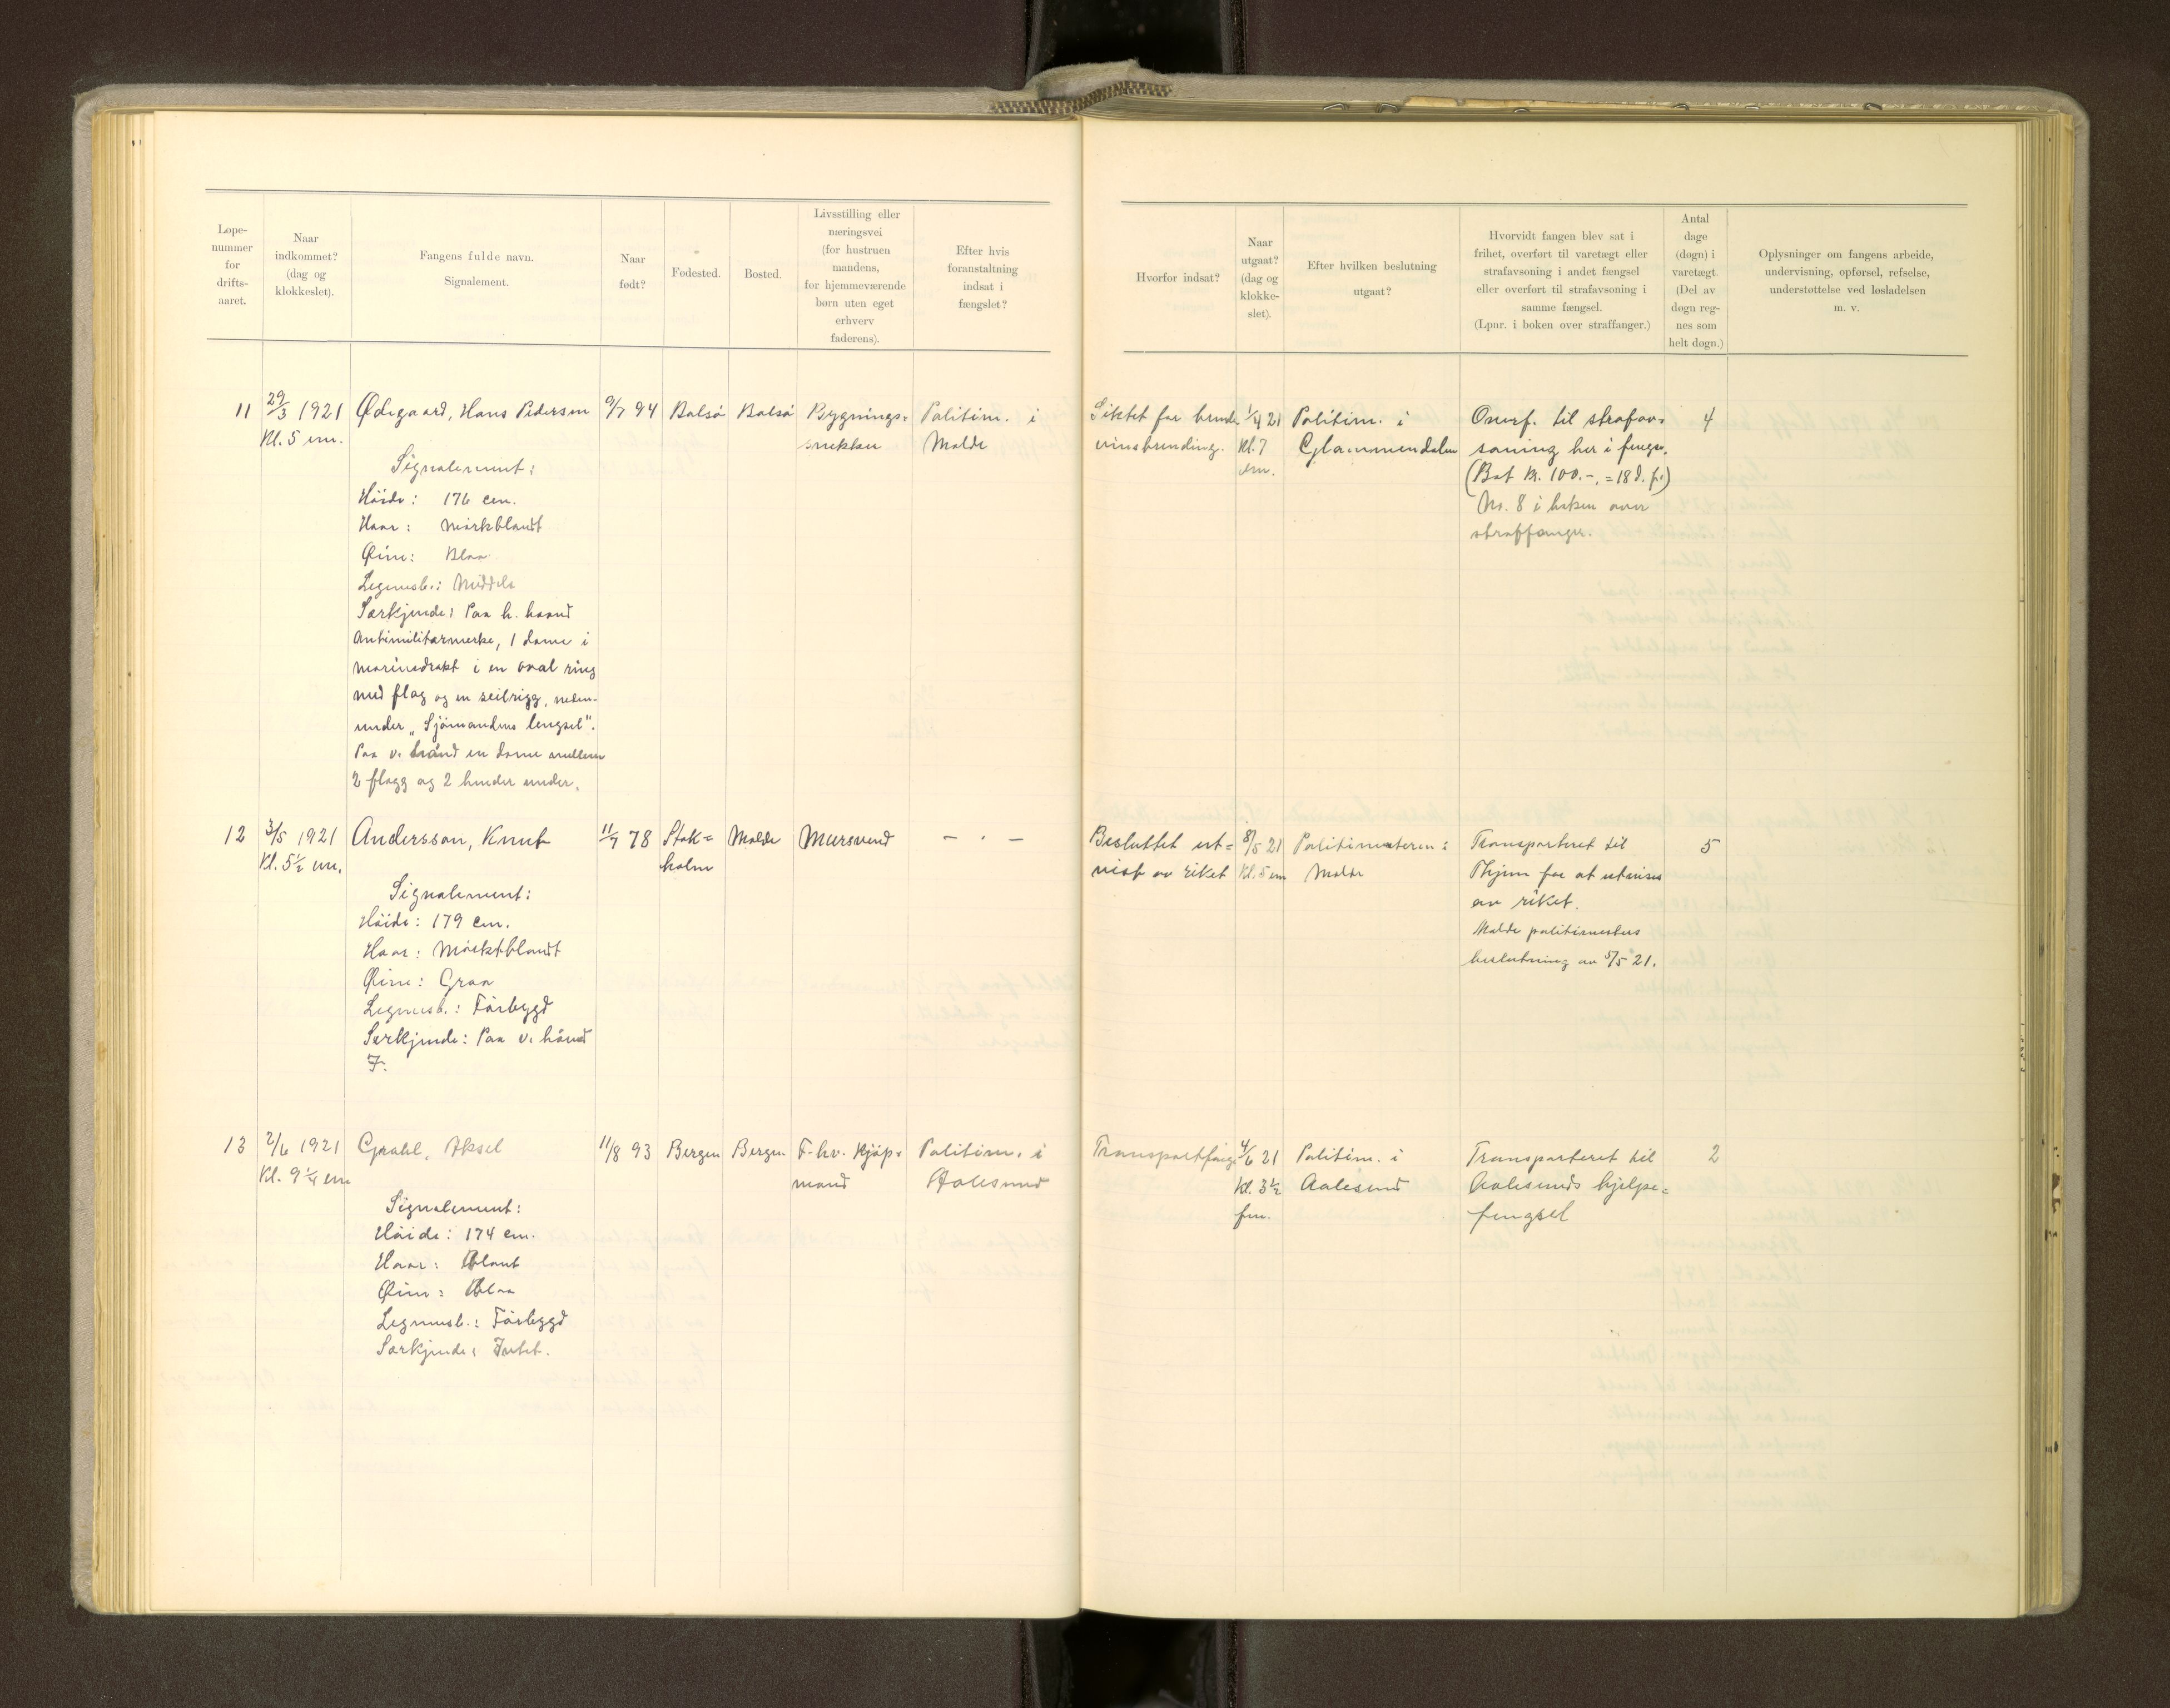 Løpe-
nummer
for
drifts-
aaret.
Naar
indkommet?
(dag og
klokkeslet).
Fangens fulde navn.
Signalement.
Naar
født?
Fødested.
Bosted.
Livsstilling eller
næringsvei
(for hustruen
mandens,
for hjemmeværende
børn uten eget
erhverv
faderens).
Efter hvis
foranstaltning
indsat i
fængslet?
Hvorfor indsat?
Naar
utgaat?
(dag og
klokke-
slet).
Efter hvilken beslutning
utgaat?
Hvorvidt fangen blev sat i
frihet, overført til varetægt eller
strafavsoning i andet fængsel
eller overført til strafavsoning i
samme fængsel.
(Lpnr. i boken over straffanger.)
Antal
dage
(døgn) i
varetægt.
(Del av
døgn reg-
nes som
helt døgn.)
Oplysninger om fangens arbeide,
undervisning, opførsel, refselse,
understøttelse ved løsladelsen
m. v.
11
29/3 1921
Kl. 5 em.
Ødegaard, Hans Pedersen
Signalement:
Höide: 176 cm.
Haar: Mörkblondt
Øine: Blaa
Legemsb.: Middels
Særkjende: Paa h. haand
Antimilitærmerke, 1 dame i
marinedrakt i en oval ring
med flag og en seilrigg, neden-
under „Sjömandens lengsel".
Paa v. hånd en dame mellem
2 flagg og 2 hender under.
9/7 94
Bolsö
Bolsö
Bygnings-
snekker
Politim. i
Molde
Siktet for brende
vinsbrending.
1/4 21
Kl. 7
em.
Politim. i
Glammendalen
Overf. til strafav-
soning her i fengs.
(Bot Kr. 100.-, = 18 d. f.)
No. 8 i boken over
straffanger.
4
12
3/5 1921
Kl. 5½ em.
Andersson, Knut
Signalement:
Höide: 179 cm.
Haar: Mörktblondt
Øine: Graa
Legemsb.: Förbygd
Særkjende: Paa v. hånd
7.
11/7 78
Stok=
holm
Molde
Mursvend
— . —
Besluttet ut=
vist av riket
8/5 21
Kl. 5 em
Politimesteren i
Molde
Transporteret til
Thjem for at utvises
av riket.
Molde politimesters
beslutning av 5/5 21.
5
13
2/6 1921
Kl. 9¼ em
Grahl, Aksel
Signalement:
Höide: 174 cm.
Haar: Blont
Øine: Blaa
Legemsb.: Förbygd
Særkjende: Intet.
11/8 93
Bergen
Bergen
F. hv. Kjöp-
mand
Politim. i
Aalesund
Transportfange
4/6 21
Kl. 3½
fm.
Politim. i
Aalesund
Transporteret til
Aalesunds hjelpe=
fengsel
2